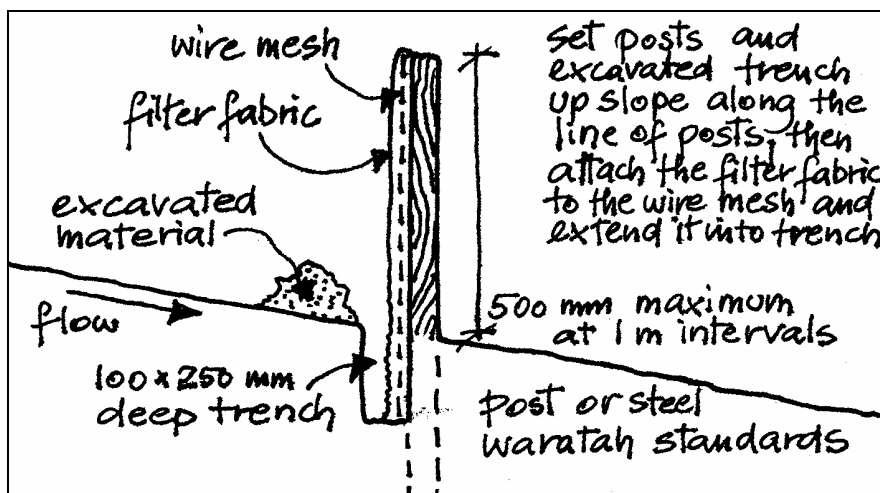 wire mesh
filter fabric
excavated
material
flow
100 x 250 mm
deep trench
set posts and
excavated trench
up slope along the
line of posts, then
attach the filter fabric
to the wire mesh and
extend it into trench
500 mm maximum
at 1 m intervals
post or steel
waratah standards